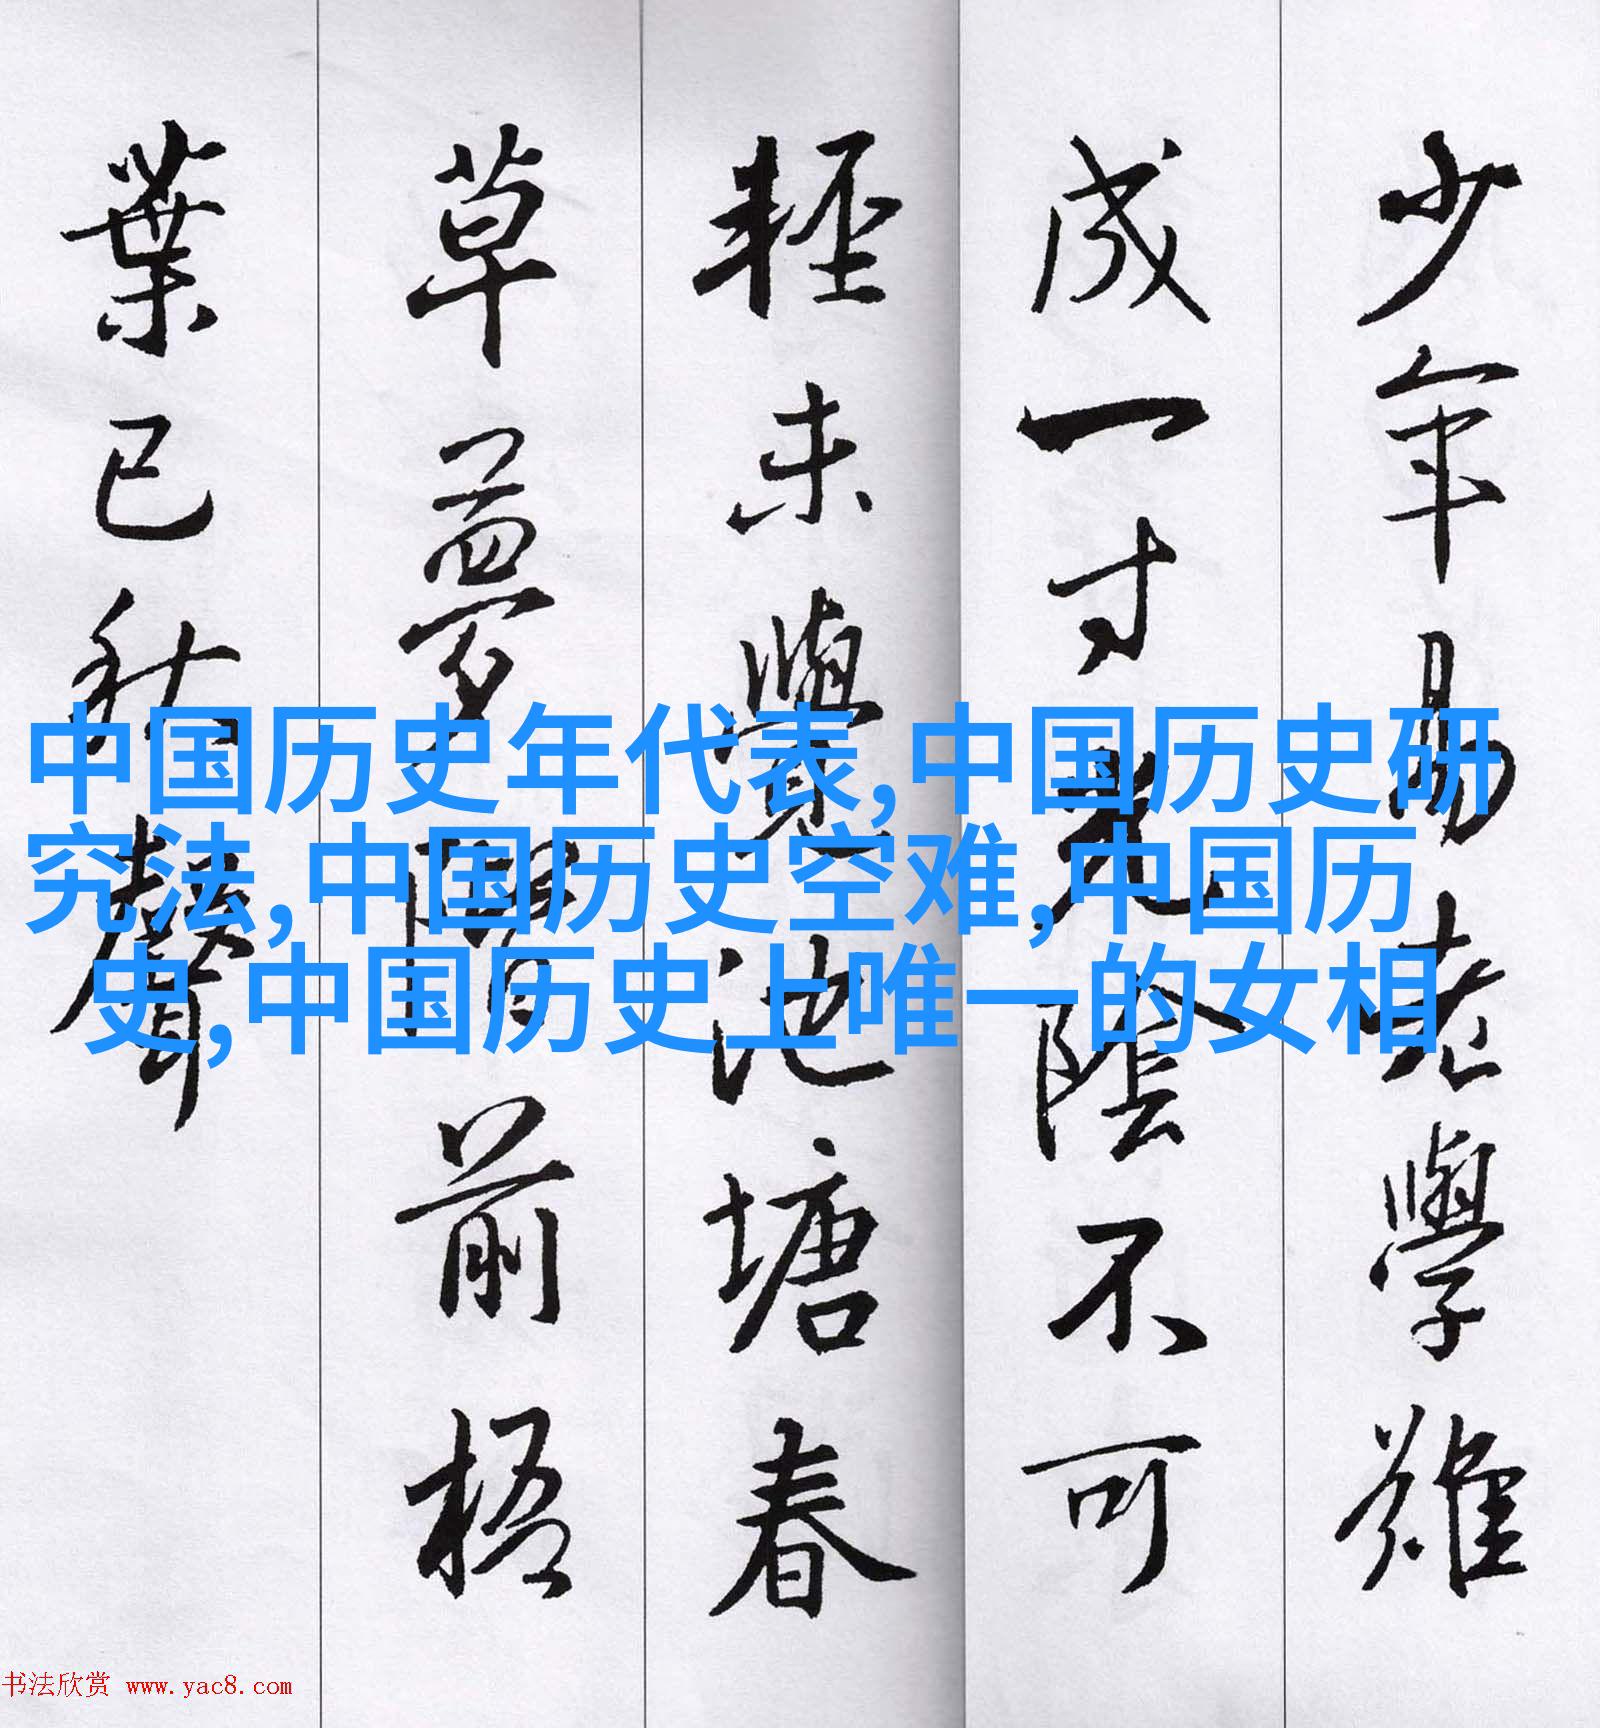 少年易老學難
成一寸光陰不可
輕未覺池塘春
草夢階前梧
葉已秋聲
中国历史年代表,中国历史研
究法,中国历史空难,中国历
史,中国历史上唯一的女相
书法欣赏 www.yac8.com